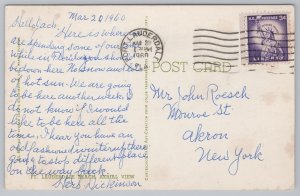 Mar 20 1960
Hello Jack,
Here is where we
are spending some of our
while in Florida. Good
down here No snow and
of hot sun. We are going
to be here another week. I
do not know if I would
like to be here all the
time. I hear you have an
old fashioned winter up there
going to stop different place
on the way back.
Herb Dickinson
FT. LAUDERDALE BEACH, AERIAL VIEW
FORT LAUDERDALE
MAR 21
1960
POST CARD
U.S. POSTAGE 3¢
LIBERTY
Mr John Roesch
Monroe St
Akron
New York